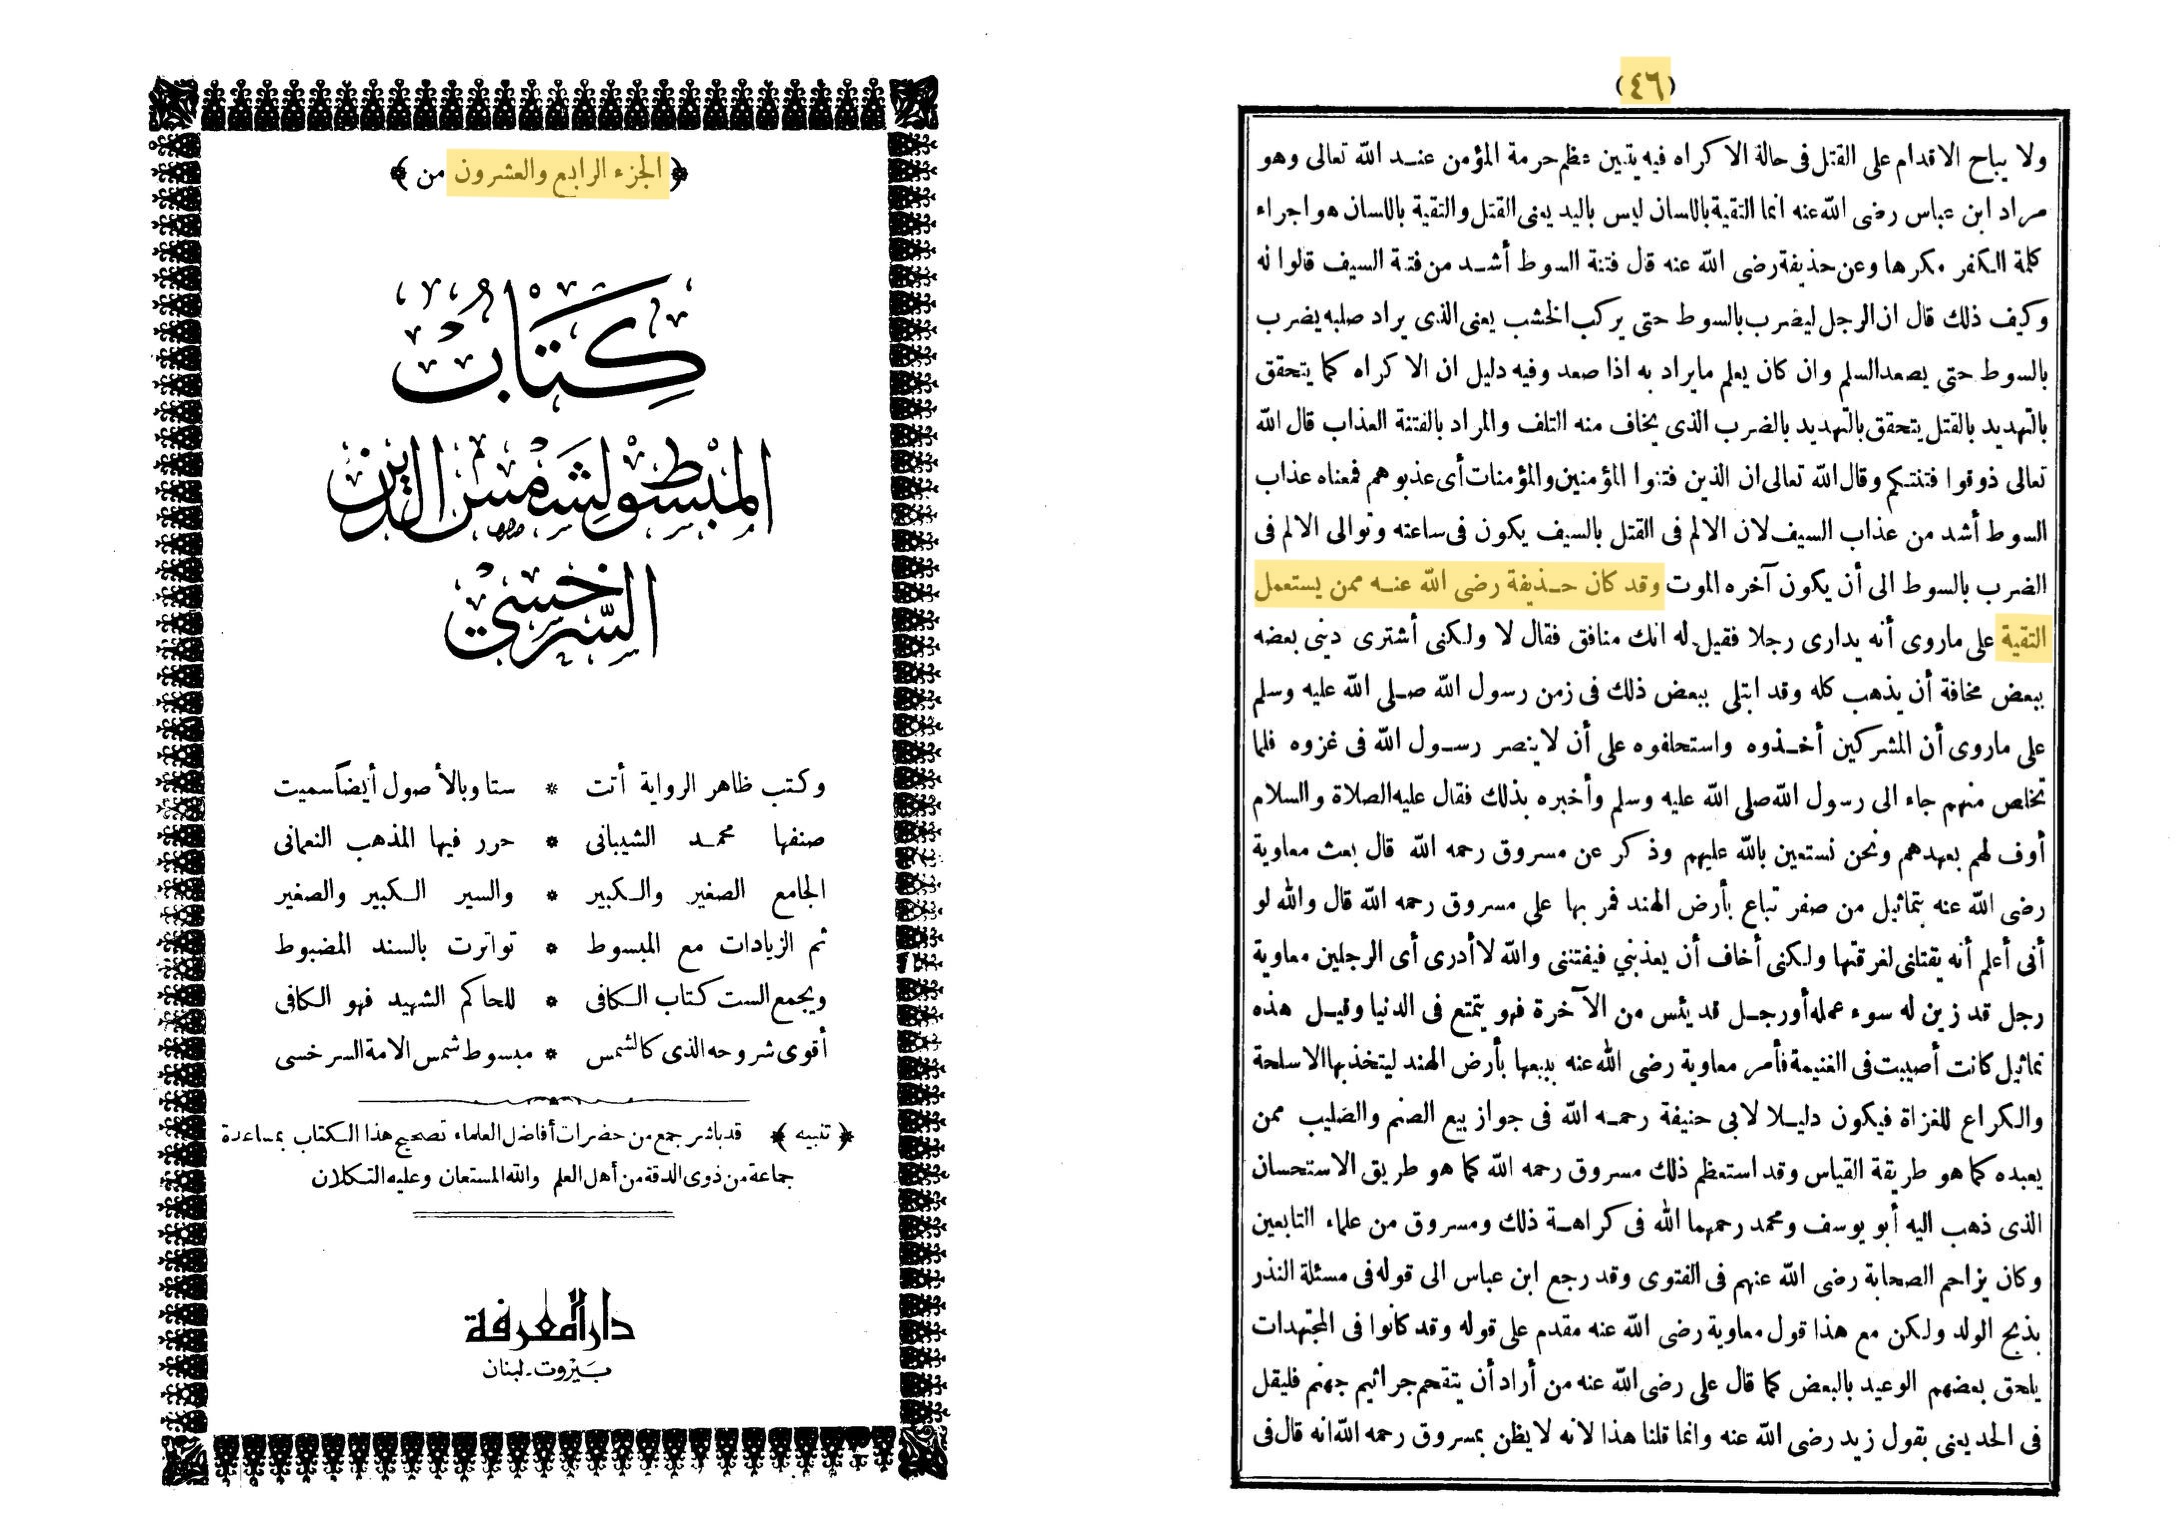 الجزء الرابع والعشرون من
كتاب
المبسوط لشمس الدين
السرخسي
وكتب ظاهر الرواية أتت * ستا وبالأصول أيضاً سميت
صنفها محمد الشيبانى * حرر فيها المذهب النعمانى
الجامع الصغير والكبير * والسير الكبير والصغير
ثم الزيادات مع المبسوط * تواترت بالسند المضبوط
ويجمع الست كتاب الكافى * للحاكم الشهيد فهو الكافى
أقوى شروحه الذى كالشمس * مبسوط شمس الامة السرخسى
(تنبيه) قد باشر جمع من حضرات أفاضل العلماء تصحيح هذا الكتاب بمساعدة
جماعة من ذوى الدقة من أهل العلم والله المستعان وعليه التكلان
دار المعرفة
بيروت - لبنان
(٤٦)
ولا يباح الاقدام على القتل فى حالة الاكراه فيه يتبين عظم حرمة المؤمن عند الله تعالى وهو
مراد ابن عباس رضى الله عنه انما التقية باللسان ليس باليد يعنى القتل والتقية باللسان هو اجراء
كلمة الكفر مكرها وعن حذيفة رضى الله عنه قال فتنة السوط أشد من فتنة السيف قالوا له
وكيف ذلك قال ان الرجل ليضرب بالسوط حتى يركب الخشب يعنى الذى يراد صلبه يضرب
بالسوط حتى يصعد السلم وان كان يعلم ما يراد به اذا صعد وفيه دليل ان الاكراه كما يتحقق
بالتهديد بالقتل يتحقق بالتهديد بالضرب الذى يخاف منه التلف والمراد بالفتنة العذاب قال الله
تعالى ذوقوا فتنتكم وقال الله تعالى ان الذين فتنوا المؤمنين والمؤمنات أى عذبوهم فمعناه عذاب
السوط أشد من عذاب السيف لان الالم فى القتل بالسيف يكون فى ساعته وتوالى الالم فى
الضرب بالسوط الى أن يكون آخره الموت وقد كان حذيفة رضى الله عنه ممن يستعمل
التقية على ماروى أنه يدارى رجلا فقيل له انك منافق فقال لا ولكنى أشترى دينى بعضه
ببعض مخافة أن يذهب كله وقد ابتلى ببعض ذلك فى زمن رسول الله صلى الله عليه وسلم
على ماروى أن المشركين أخذوه واستحلفوه على أن لا ينصر رسول الله فى غزوه فلما
تخلص منهم جاء الى رسول الله صلى الله عليه وسلم وأخبره بذلك فقال عليه الصلاة والسلام
أوف لهم بعهدهم ونحن نستعين بالله عليهم وذكر عن مسروق رحمه الله قال بعث معاوية
رضى الله عنه بتماثيل من صفر تباع بأرض الهند فمر بها على مسروق رحمه الله قال والله لو
أنى أعلم أنه يقتلنى لغرقتها ولكنى أخاف أن يعذبني فيفتننى والله لا أدرى أى الرجلين معاوية
رجل قد زين له سوء عمله أو رجل قد يئس من الآخرة فهو يتمتع فى الدنيا وقيل هذه
تماثيل كانت أصيبت فى الغنيمة فأمر معاوية رضى الله عنه ببيعها بأرض الهند ليتخذ بها الاسلحة
والكراع للغزاة فيكون دليلا لابى حنيفة رحمه الله فى جواز بيع الصنم والصليب ممن
يعبده كما هو طريقة القياس وقد استعظم ذلك مسروق رحمه الله كما هو طريق الاستحسان
الذى ذهب اليه أبو يوسف ومحمد رحمهما الله فى كراهة ذلك ومسروق من علماء التابعين
وكان يزاحم الصحابة رضى الله عنهم فى الفتوى وقد رجع ابن عباس الى قوله فى مسئلة النذر
بذبح الولد ولكن مع هذا قول معاوية رضى الله عنه مقدم على قوله وقد كانوا فى المجتهدات
يلحق بعضهم الوعيد بالبعض كما قال على رضى الله عنه من أراد أن يتقحم جراثيم جهنم فليقل
فى الحد يعنى بقول زيد رضى الله عنه وانما قلنا هذا لانه لا يظن بمسروق رحمه الله انه قال فى